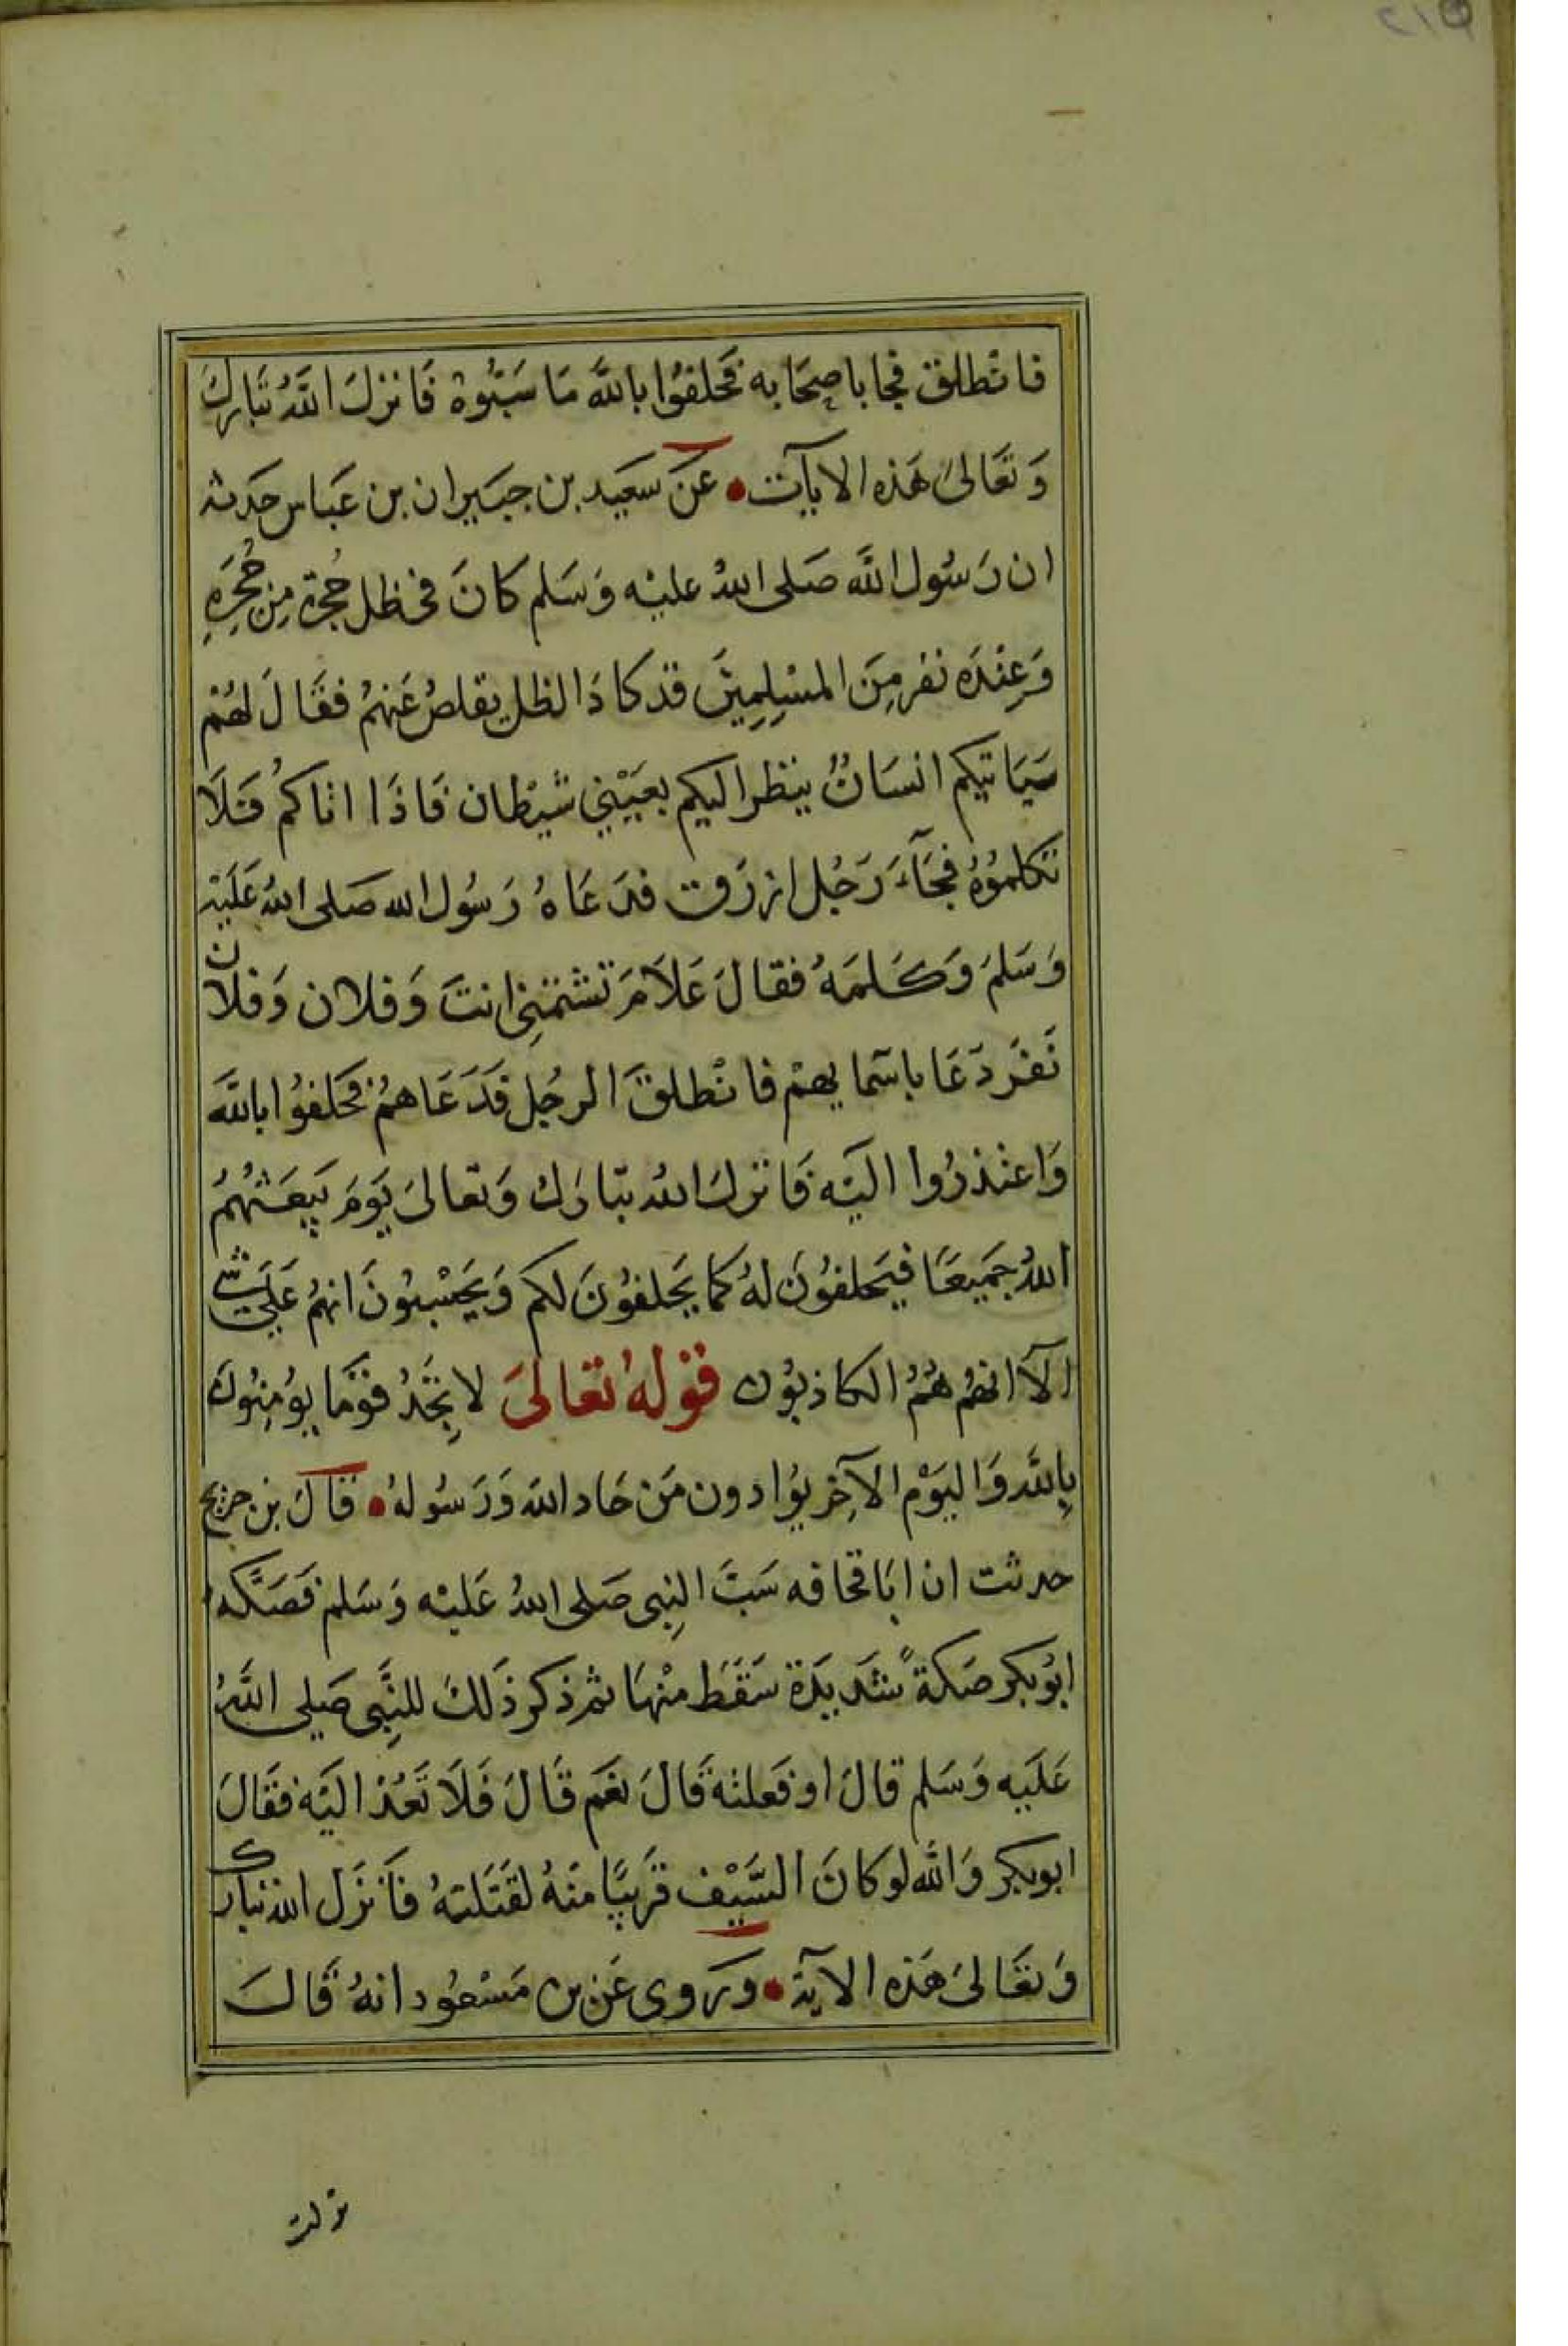 فانطلق فجا باصحابه فحلفوا بالله ما سبوه فانزل الله تبارك
وتعالى هذه الايات عن سعيد بن جبير ان بن عباس حدثه
ان رسول الله صلى الله عليه وسلم كان في ظل حجرة من حجره
وعنده نفر من المسلمين قد كاد الظل يقلص عنهم فقال لهم
سياتيكم انسان ينظر اليكم بعيني شيطان فاذا اتاكم فلا
تكلموه فجآء رجل ازرق فدعاه رسول الله صلى الله عليه
وسلم وكلمه فقال علام تشتمني انت وفلان وفلان
نفر دعا باسمايهم فانطلق الرجل فدعاهم فحلفوا بالله
واعتذروا اليه فانزل الله تبارك وتعالى يوم يبعثهم
الله جميعا فيحلفون له كما يحلفون لكم ويحسبون انهم على شي
الآ انهم هم الكاذبون قوله تعالى لا تجد قوما يومنون
بالله واليوم الآخر يوادون من حاد الله ورسوله قال بن جريج
حدثت ان ابا قحافه سب النبي صلى الله عليه وسلم فصكه
ابو بكر صكة شديدة سقط منها ثم ذكر ذلك للنبي صلى الله
عليه وسلم قال او فعلته قال نعم قال فلا تعد اليه فقال
ابو بكر والله لو كان السيف قريبا منه لقتلته فانزل الله تبارك
وتعالى هذه الآية وروى عن بن مسعود انه قال
نزلت